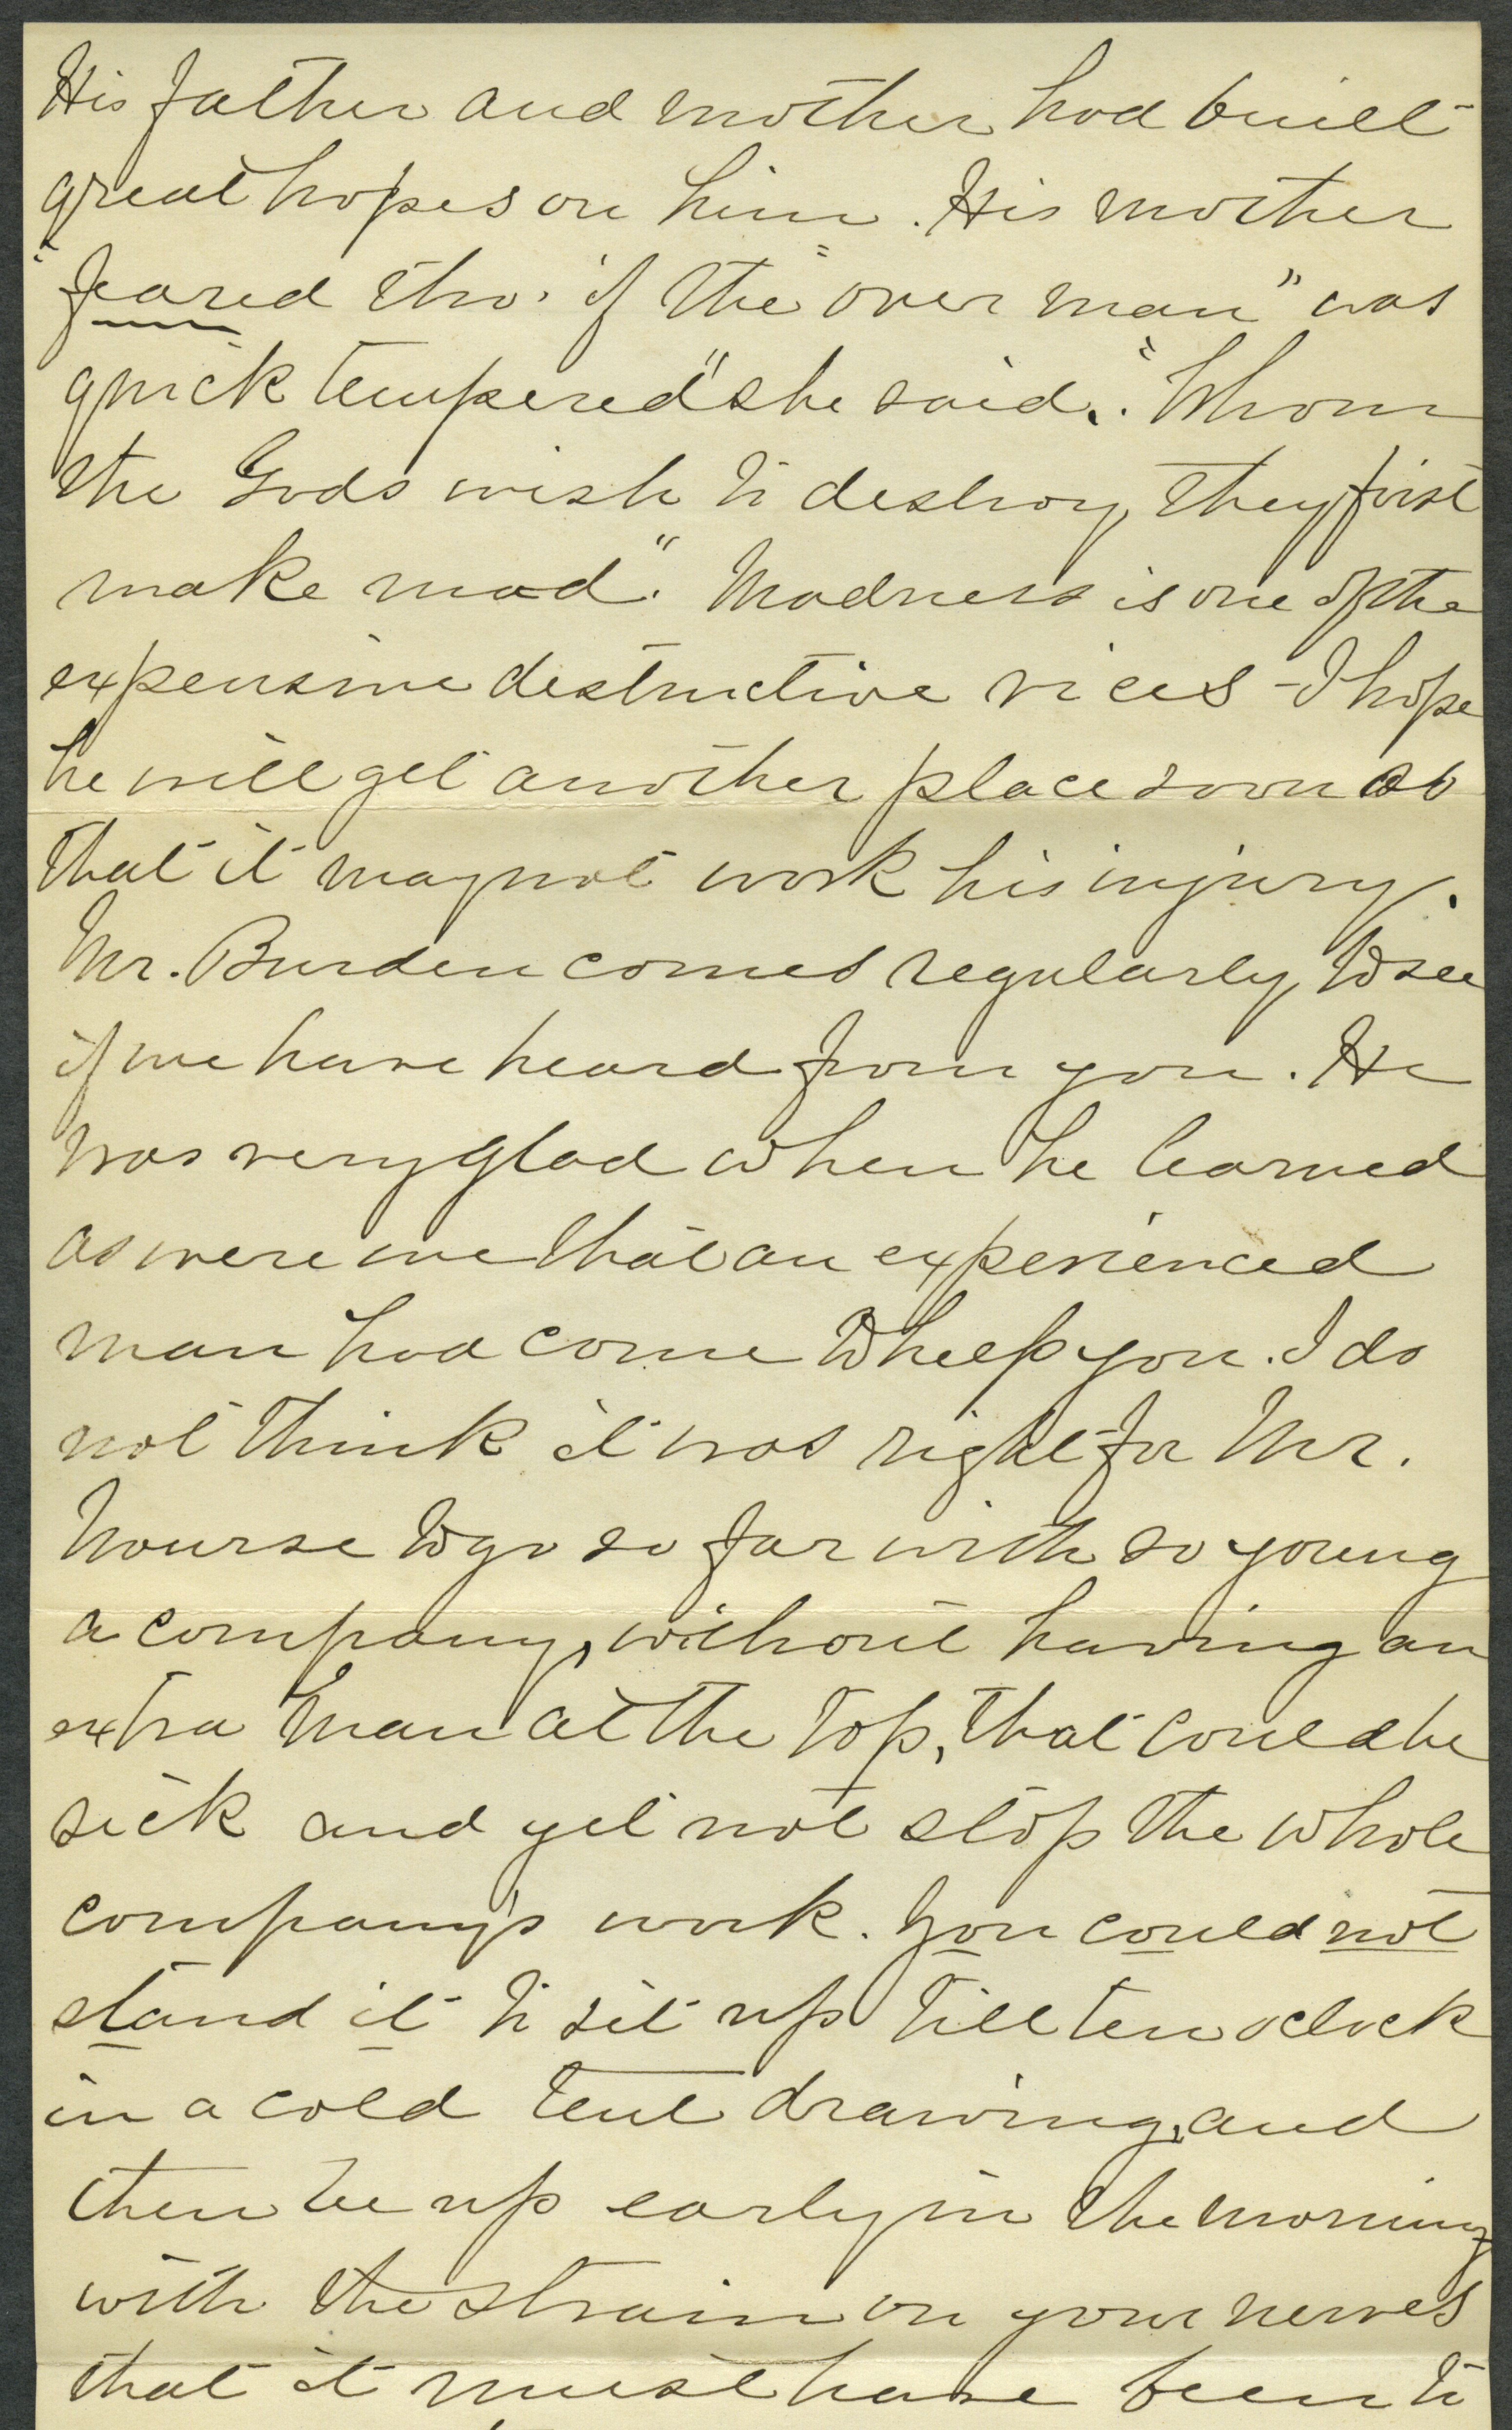 His father and mother had built
great hopes on him. His mother
"feared tho' if the "over man" was
quick tempered" she said. "Whom
the Gods wish to destroy, they first
make mad". Madness is one of the
expensive destructive vices - I hope
he will get another place soon so
that it may not work his injury.
Mr. Burden comes regularly to see
if we have heard from you. He
was very glad when he learned
as were we that an experienced
man had come to help you. I do
not think it was right for Mr.
Nourse to go so far with so young
a company, without having an
extra man at the top, that could be
sick and yet not stop the whole
company's work. You could not
stand it to sit up till ten oclock
in a cold tent drawing, and
then be up early in the morning
with the strain on your nerves
that it must have been to